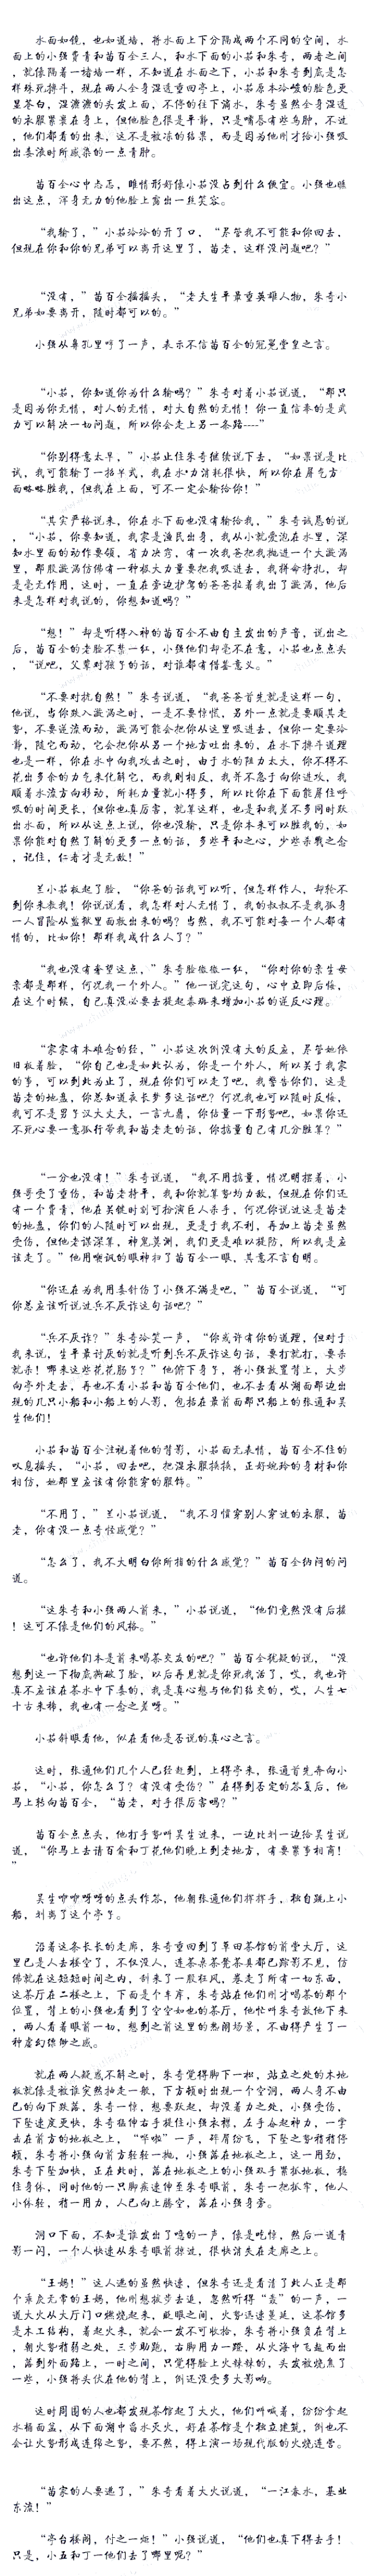 水面如镜，也如道墙，将水面上下分隔成两个不同的空间，水
面上的小强费青和苗百全三人，和水下面的小茹和朱奇，两者之间
，就像隔着一堵墙一样，不知道在水面之下，小茹和朱奇到底是怎
样殊死搏斗，现在两人全身湿透重回亭上，小茹原本冷峻的脸色更
显苍白，湿漉漉的头发上面，不停的往下滴水，朱奇虽然全身湿透
的衣服紧裹在身上，但他脸色很是平静，只是嘴唇有些乌肿，不过
，他们都看的出来，这不是被冻的结果，而是因为他刚才给小强吸
出毒液时所感染的一点青肿。
苗百全心中忐忑，瞧情形好像小茹没占到什么便宜。小强也瞧
出这点，浑身无力的他脸上露出一丝笑容。
“我输了，”小茹冷冷的开了口，“尽管我不可能和你回去，
但现在你和你的兄弟可以离开这里了，苗老，这样没问题吧？”
“没有，”苗百全摇摇头，“老夫生平最重英雄人物，朱奇小
兄弟如要离开，随时都可以的。”
小强从鼻孔里哼了一声，表示不信苗百全的冠冕堂皇之言。
“小茹，你知道你为什么输吗？”朱奇对着小茹说道，“那只
是因为你无情，对人的无情，对大自然的无情！你一直信奉的是武
力可以解决一切问题，所以你会走上另一条路----”
“你别得意太早，”小茹止住朱奇继续说下去，“如果说是比
试，我可能输了一招半式，我在水力消耗很快，所以你在屏气方
面略略胜我，但我在上面，可不一定会输给你！”
“其实严格说来，你在水下面也没有输给我，”朱奇诚恳的说
，“小茹，你要知道，我家是渔民出身，我从小就爱泡在水里，深
知水里面的动作要领、省力决窍，有一次我爸把我抛进一个大漩涡
里，那股漩涡仿佛有一种极大力量要把我吸进去，我拼命挣扎，却
是毫无作用，这时，一直在旁边护驾的爸爸拉着我出了漩涡，他后
来是怎样对我说的，你想知道吗？”
“想！”却是听得入神的苗百全不由自主发出的声音，说出之
后，苗百全的老脸不禁一红，小强他们却毫不在意，小茹也点点头
，“说吧，父辈对孩子的话，对谁都有借鉴意义。”
“不要对抗自然！”朱奇说道，“我爸爸首先就是这样一句，
他说，当你跌入漩涡之时，一是不要惊慌，另外一点就是要顺其走
势，不要逆流而动，漩涡可能会把你从这里吸进去，但你一定要冷
静，随它而动，它会把你从另一个地方吐出来的，在水下搏斗道理
也是一样，你在水中向我攻击之时，由于水的阻力太大，你不得不
花出多余的力气来化解它，而我则相反，我并不急于向你进攻，我
顺着水流方向移动，所耗力量就小得多，所以比你在下面能屏住呼
吸的时间更长，但你也真厉害，就算这样，也是和我差不多同时跃
出水面，所以从这点上说，你也没输，只是你本来可以胜我的，如
果你能对自然了解的更多一点的话，多些平和之心，少些杀戮之念
，记住，仁者才是无敌！”
兰小茹板起了脸，“你爸的话我可以听，但怎样作人，却轮不
到你来教我！你说说看，我怎样对人无情了，我的叔叔不是我孤身
一人冒险从监狱里面救出来的吗？当然，我不可能对每一个人都有
情的，比如你！那样我成什么人了？”
“我也没有奢望这点，”朱奇脸微微一红，“你对你的亲生母
亲都是那样，何况我一个外人。”他一说完这句，心中立即后悔，
在这个时候，自己真没必要去提起秦琳来增加小茹的逆反心理。
“家家有本难念的经，”小茹这次倒没有大的反应，尽管她依
旧板着脸，“你自己也是如此认为，你是一个外人，所以关于我家
的事，可以到此为止了，现在你们可以走了吧，我警告你们，这是
苗老的地盘，你总知道夜长梦多这话吧？何况我也可以随时反悔，
我可不是男子汉大丈夫，一言九鼎，你估量一下形势吧，如果你还
不死心要一意孤行带我和苗老走的话，你掂量自己有几分胜算？”
“一分也没有！”朱奇说道，“我不用掂量，情况明摆着，小
强哥受了重伤，和苗老持平，我和你就算势均力敌，但现在你们还
有一个费青，他在关键时刻可扮演巨人杀手，何况你说过这是苗老
的地盘，你们的人随时可以出现，更是于我不利，再加上苗老虽然
受伤，但他老谋深算，神鬼莫测，我们更是难以提防，所以我是应
该走了。”他用嘲讽的眼神扫了苗百全一眼，其意不言自明。
“你还在为我用毒针伤了小强不满是吧，”苗百全说道，“可
你总应该听说过兵不厌诈这句话吧？”
“兵不厌诈？”朱奇冷笑一声，“你或许有你的道理，但对于
我来说，生平最讨厌的就是听到兵不厌诈这句话，要打就打，要杀
就杀！哪来这些花花肠子？”他俯下身子，将小强放置背上，大步
向亭外走去，再也不看小茹和苗百全他们，也不去看从湖面那边出
现的几只小船和小船上的人影，包括在最前面那只船上的张通和吴
生他们！
小茹和苗百全注视着他的背影，小茹面无表情，苗百全不住的
叹息摇头，“小茹，回去吧，把湿衣服换换，正好婉玲的身材和你
相仿，她那里应该有你能穿的服饰。”
“不用了，”兰小茹说道，“我不习惯穿别人穿过的衣服，苗
老，你有没一点奇怪感觉？”
“怎么了，我不大明白你所指的什么感觉？”苗百全纳闷的问
道。
“这朱奇和小强两人前来，”小茹说道，“他们竟然没有后援
！这可不像是他们的风格。”
“也许他们本是前来喝茶交友的吧？”苗百全犹疑的说，“没
想到这一下彻底撕破了脸，以后再见就是你死我活了，哎，我也许
真不应该在茶水中下毒的，我是真心想与他们结交的，哎，人生七
十古来稀，我也有一念之差呀。”
小茹斜眼看他，似在看他是否说的真心之言。
这时，张通他们几个人已经赶到，上得亭来，张通首先奔向小
茹，“小茹，你怎么了？有没有受伤？”在得到否定的答复后，他
马上转向苗百全，“苗老，对手很厉害吗？”
苗百全点点头，他打手势叫吴生过来，一边比划一边给吴生说
道，“你马上去请百俞和丁花他们晚上到老地方，有要紧事相商！
”
吴生咿咿呀呀的点头作答，他朝张通他们挥挥手，独自跳上小
船，划离了这个亭子。
沿着这条长长的走廊，朱奇重回到了草田茶馆的前堂大厅，这
里已是人去楼空了，不仅没人，连茶桌茶凳茶具都已踪影不见，仿
佛就在这短短时间之内，刮来了一股狂风，卷走了所有一切东西，
这茶厅在二楼之上，下面是个车库，朱奇站在他们刚才喝茶的那个
位置，背上的小强也看到了空空如也的茶厅，他忙叫朱奇放他下来
，两人看着眼前一切，想到之前这里的热闹场景，不由得产生了一
种虚幻缥缈之感。
就在两人疑惑不解之时，朱奇觉得脚下一松，站立之处的木地
板就像是被谁突然抽走一般，下方顿时出现一个空洞，两人身不由
已的向下跌落，朱奇一惊，想要跃起，却没着力之处，小强受伤，
下坠速度更快，朱奇猛伸右手提住小强衣襟，左手奋起神力，一掌
击在前方的地板之上，“哗啦”一声，碎屑纷飞，下坠之势稍稍停
顿，朱奇将小强向前方轻轻一抛，小强落在地板之上，这一用劲，
朱奇下坠加快，正在此时，落在地板之上的小强双手紧抓地板，稳
住身体，同时他的一只脚疾速伸至朱奇眼前，朱奇一把抓牢，他人
小体轻，稍一用力，人已向上腾空，落在小强身旁。
洞口下面，不知是谁发出了噫的一声，像是吃惊，然后一道青
影一闪，一个人快速从朱奇眼前掠过，很快消失在走廊之上。
“王娟！”这人逃的虽然快速，但朱奇还是看清了此人正是那
个乖戾无常的王娟，他刚想拔步去追，忽然听得“轰”的一声，一
道大火从大厅门口燃烧起来，眨眼之间，火势迅速蔓延，这茶馆多
是木工结构，着起火来，就会一发不可收拾，朱奇将小强负在背上
，朝火势稍弱之处，三步助跑，右脚用力一蹬，从火海中飞越而出
，落到外面路上，一时之间，只觉得脸上火辣辣的，头发被烧焦了
一些，小强将头伏在他的背上，倒还没受多大影响。
这时周围的人也都发现茶馆起了大火，他们呼喊着，纷纷拿起
水桶面盆，从下面湖中舀水灭火，好在茶馆是个独立建筑，倒也不
会让火势形成连绵之势，要不然，得上演一场现代版的火烧连营。
“苗家的人要逃了，”朱奇看着大火说道，“一江春水，基业
东流！”
“亭台楼阁，付之一炬！”小强说道，“他们也真下得去手！
只是，小五和丁一他们去了哪里呢？”